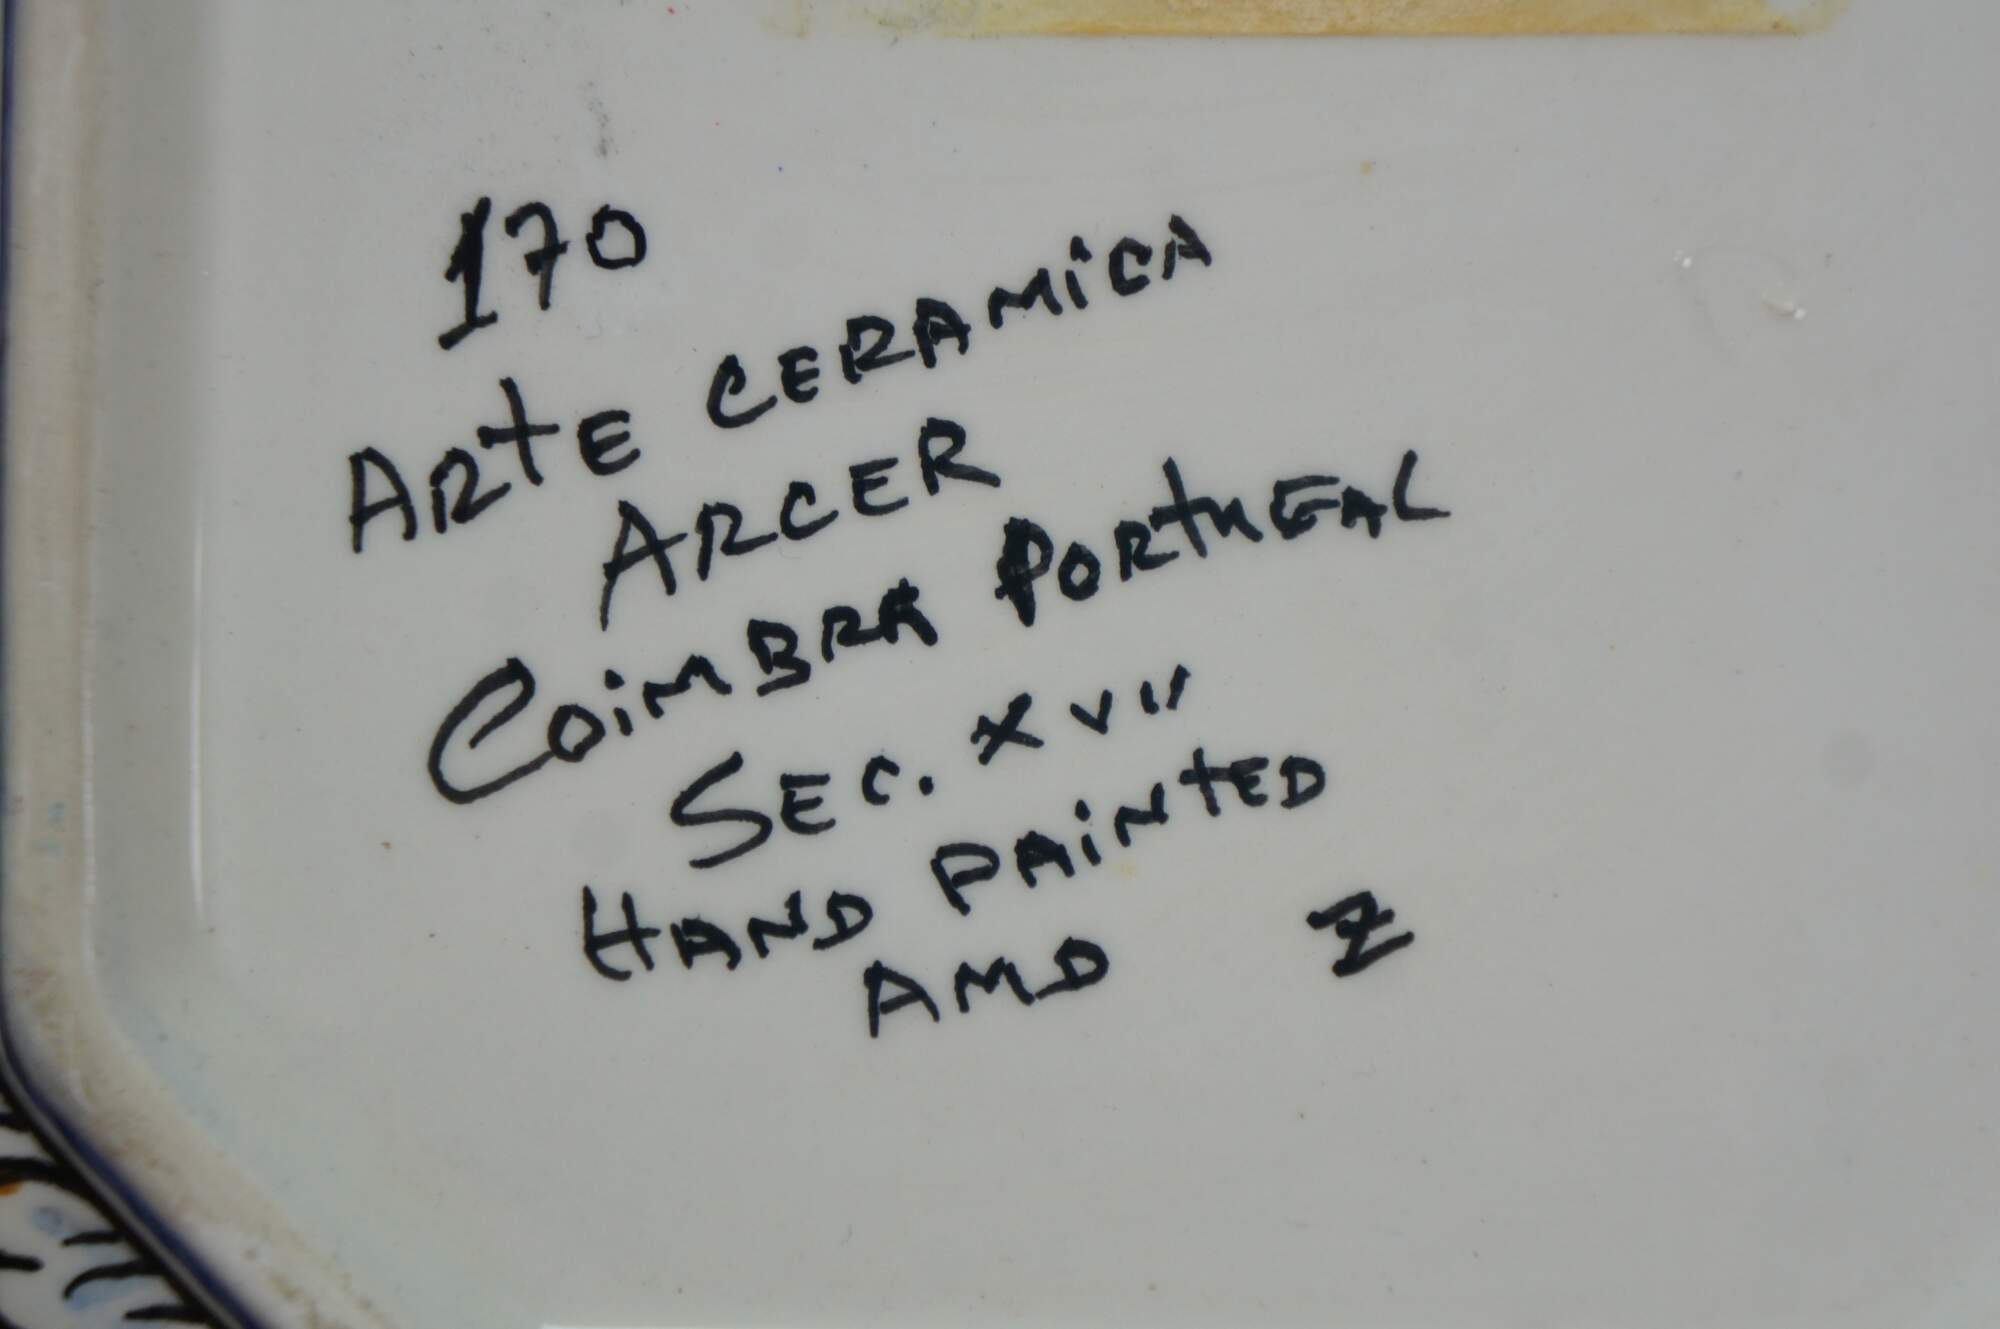 170
ARtE CERAMiCA
ARCER
COiMBRA PORtuGAL
SEC. XVII
HAND PAiNtED
AMD Z